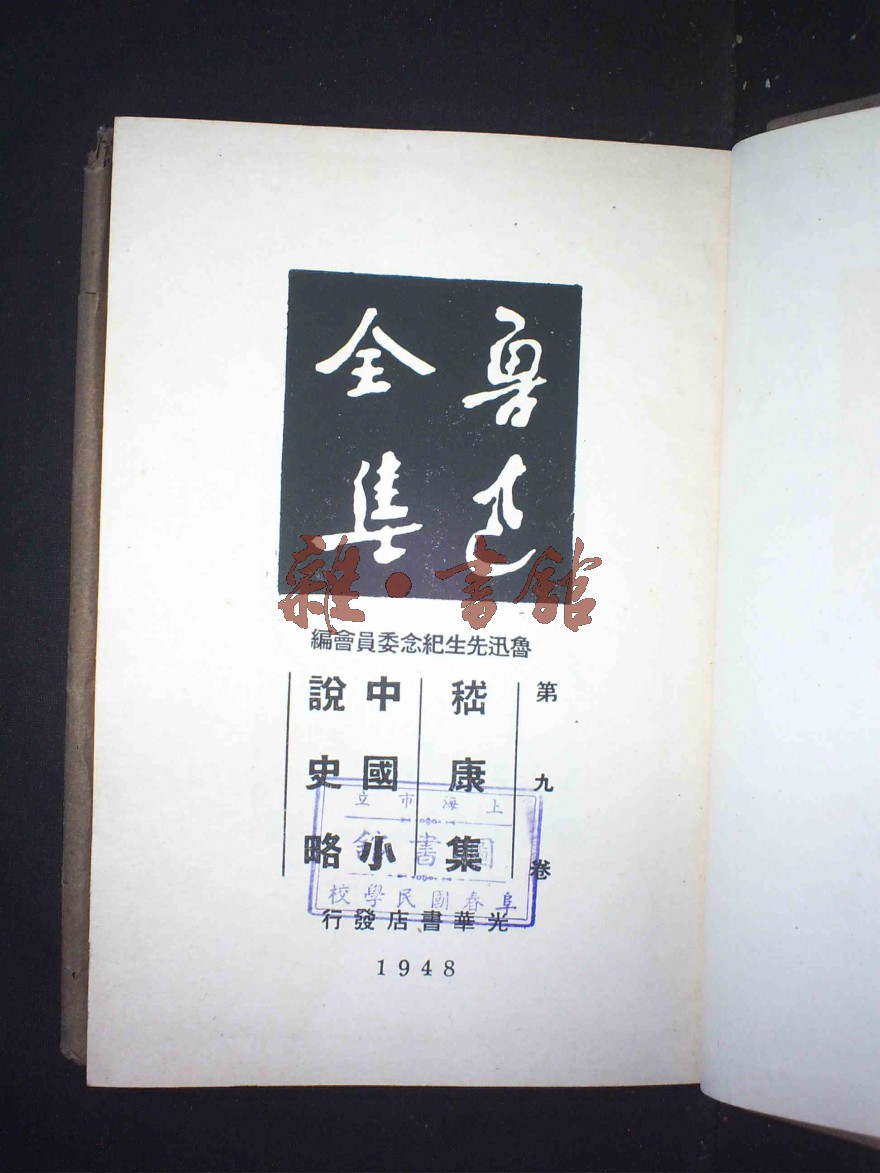 魯迅
全集
雜·書館
魯迅先生紀念委員會編
第九卷
嵇康集
中國小
說史略
上海市立
圖書館
阜春國民學校
光華書店發行
1948